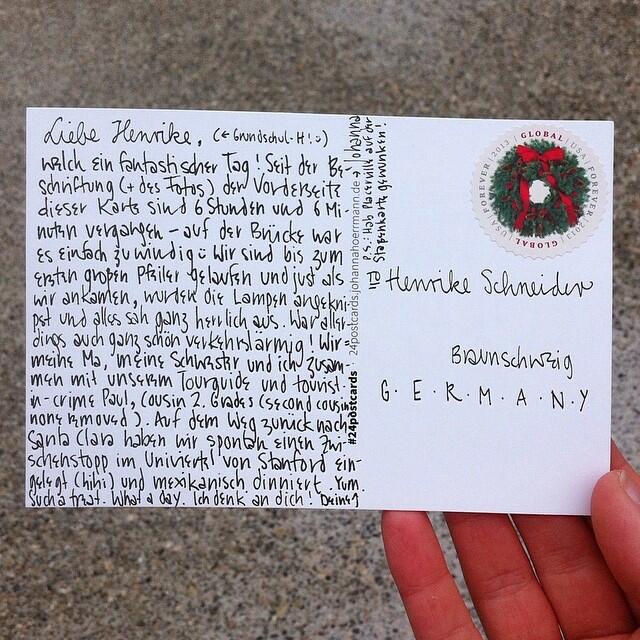 Liebe Henrike, (← Grundschul-H! ü)
welch ein fantastischer Tag! Seit der Be-
schriftung (+ des Fotos) der Vorderseite
dieser Karte sind 6 Stunden und 6 Mi-
nuten vergangen – auf der Brücke war
es einfach zu windig ü Wir sind bis zum
ersten großen Pfeiler gelaufen und just als
wir ankamen, wurden die Lampen angekni-
pst und alles sah ganz herrlich aus. War aller-
dings auch ganz schön verkehrslärmig! Wir =
meine Ma, meine Schwester und ich zusam-
men mit unserem Tourguide und tourist-
in-crime Paul, cousin 2. Grades (second cousin
none removed). Auf dem Weg zurück nach
Santa Clara haben wir spontan einen Zwi-
schenstopp im Univiertel von Stanford ein-
gelegt (hihi) und mexikanisch dinniert. Yum.
Such a treat. What a day. Ich denk an dich! Deine
Johanna
P.S.: Hab Placerville auf der
Siegerkarte gewunken!
#24postcards · 24postcards.johannahoerrmann.de
GLOBAL
USA FOREVER 2013
GLOBAL
USA FOREVER 2013
TO Henrike Schneider
Braunschweig
G · E · R · M · A · N · Y